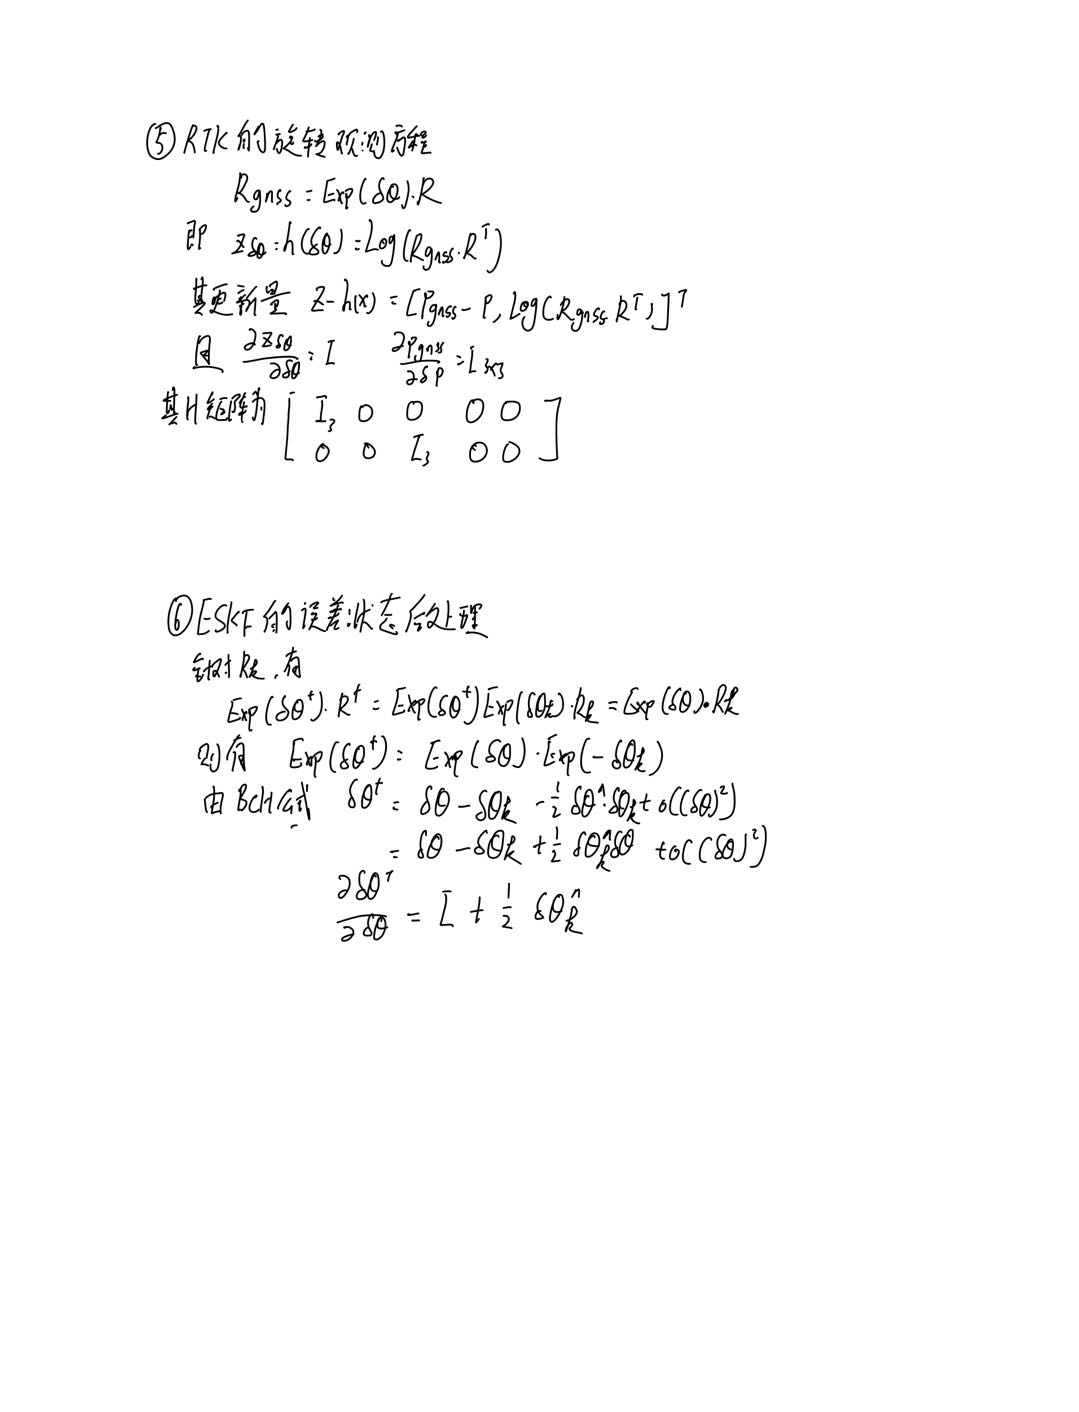 ⑤ RTK的旋转观测方程
Rgnss = Exp(δθ)·R
即 zδθ = h(δθ) = Log(Rgnss·Rᵀ)
其更新量 Z-h(x) = [Pgnss - P, Log(Rgnss Rᵀ)]ᵀ
且 ∂Zδθ/∂δθ = I ∂Pgnss/∂δP = I₃ₓ₃
其H矩阵为 [ I₃ 0 0 0 0
0 0 I₃ 0 0 ]
⑥ ESKF的误差状态后处理
针对Rk,有
Exp(δθ⁺)·R⁺ = Exp(δθ⁺)Exp(δθk)·Rk = Exp(δθ)·Rk
则有 Exp(δθ⁺) = Exp(δθ)·Exp(-δθk)
由BCH公式 δθ⁺ = δθ - δθk - ½ δθ^·δθk + o((δθ)²)
= δθ - δθk + ½ δθk^δθ + o((δθ)²)
∂δθ⁺/∂δθ = I + ½ δθk^